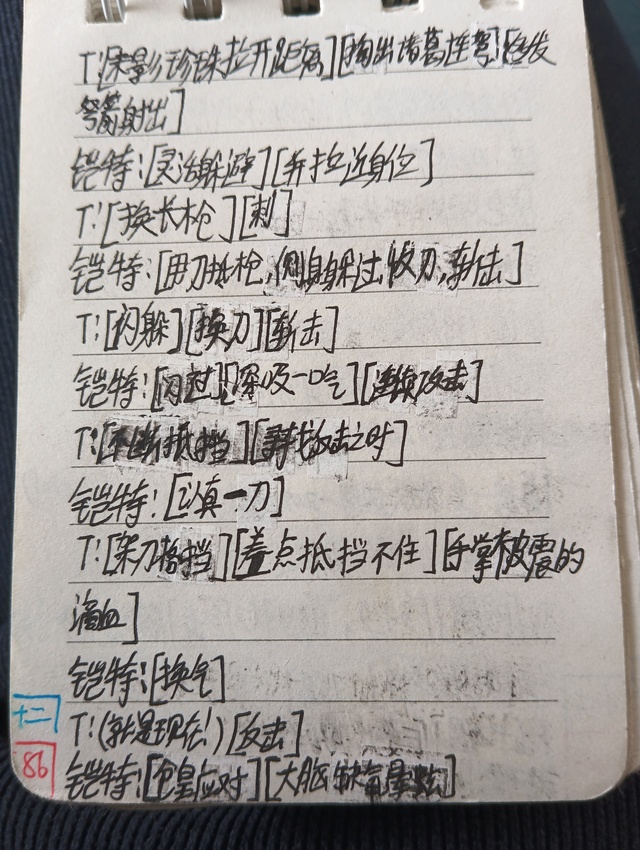 T:[末影珍珠拉开距离][掏出诸葛连弩][连发
弩箭射出]
铠特:[灵活躲避][并拉近身位]
T:[换长枪][刺]
铠特:[用刀抵枪,侧身躲过收刀,斩击]
T:[闪躲][换刀][斩击]
铠特:[闪过][深吸一口气][连续攻击]
T:[不断抵挡][寻找反击之时]
铠特:[认真一刀]
T:[架刀格挡][差点抵挡不住][手掌被震的
滴血]
铠特:[换气]
T:(就是现在!)[反击]
铠特:[仓皇应对][大脑缺氧晕眩]
十二
86